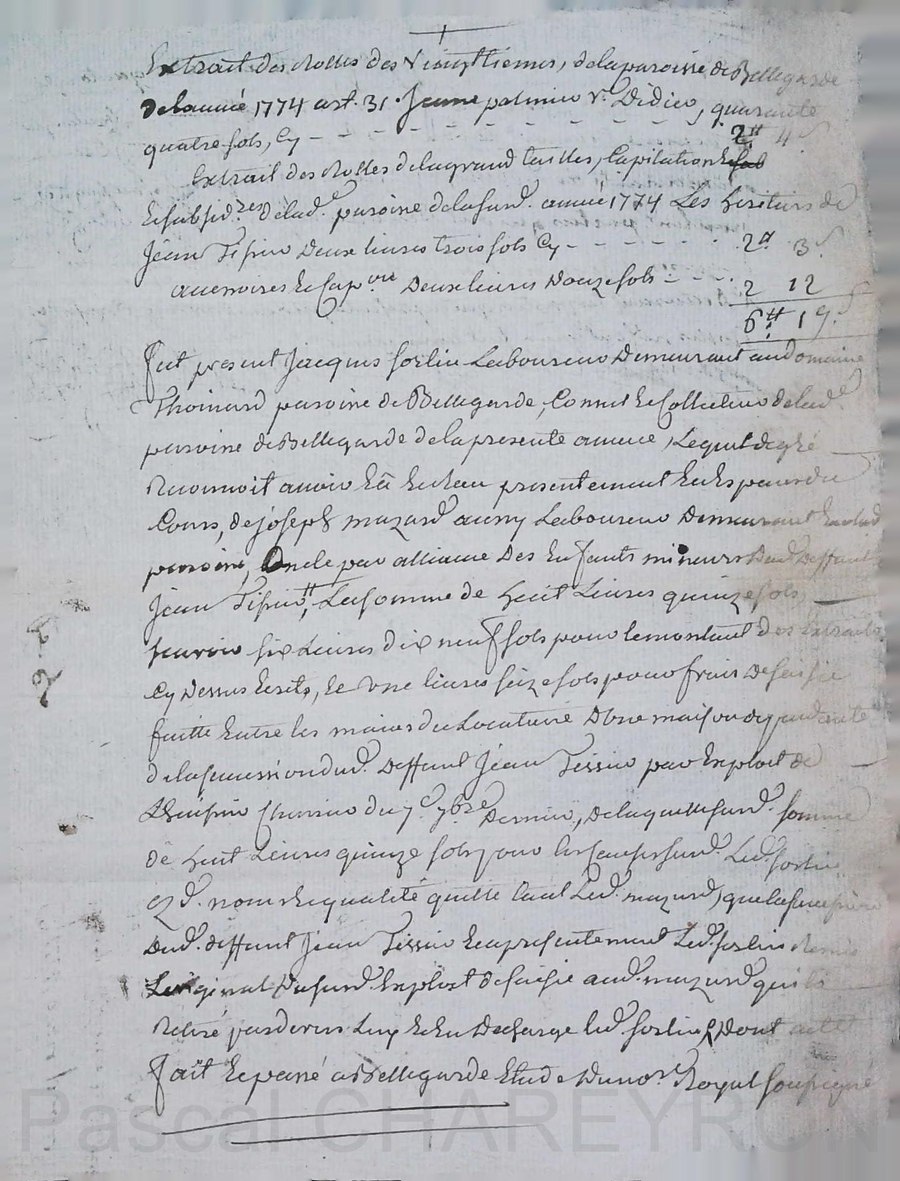 Extrait des Rolles des Vingttiemes, de la paroisse de Bellegarde
de lannée 1774 art. 31. Jeanne palmier Ve. Didier, quarante
quatre sols, Cy - - - - - - - 2tt 4s
Extrait des Rolles de la grand taille, Capitation
Et subsid.res de lad.e paroisse de la sus.d. année 1774 Les heritiers de
Jean Tisseur Deux livres trois sols Cy - - - - - 2tt 3s
accessoires Et Cap.on Deux livres Douze sols - - - 2 12
6tt 19s
fut present Jacques forlin Laboureur Demeurant au Domaine
Thoinard paroisse de Bellegarde, Consul Et Collecteur de lad.e
paroisse de Bellegarde de la presente année, Lequel de gré
Reconnoit avoir Eü Et Receu presentement En Especes du
Cours, de joseph mazard Laboureur Demeurant En lad.
paroisse, Oncle par alliance Des Enfants mineurs Dud. Deffunt
Jean Tissier, La somme de huit Livres quinze sols,
scavoir six Livres dix neuf sols pour le montant des Extraits
Cy Dessus Ecrits, Et Une livres seize sols pour frais De saisie
faitte Entre les mains du Locataire D'une maison dependante
de la succession dud. Deffunt Jean Tissier par Exploit de
huissier du 7.e 7bre Dernier, De laquelle susd. somme
de huit Livres quinze sols pour les Causes susd. Led. forlin
aud. nom Et qualité quitte tant Led. mazard, que la succession
Dud. deffunt Jean Tissier Et a presentement Led. forlin Remis
L'original Du susd. Exploit de saisie aud. mazard qui la
Retiré pardevers Luy Et En Decharge led. forlin, Dont acte
fait Et passé a Bellegarde Etude Du no.re Royal soussigné
Pascal CHAREYRON